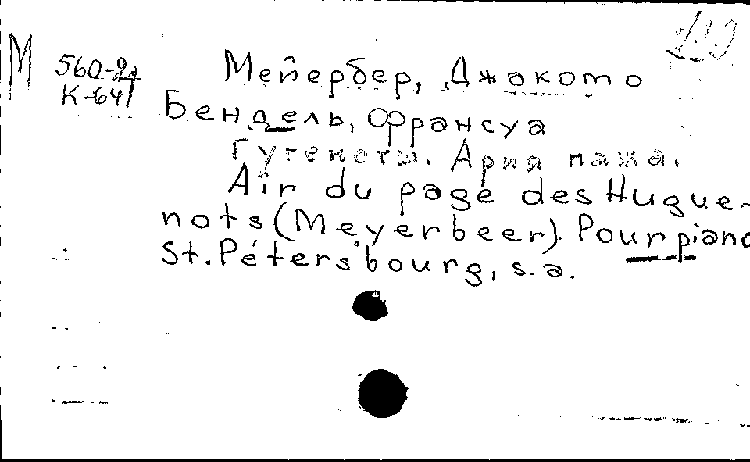 М 560-2
К-641
Мейербер, Джакомо
Бендель, Франсуа
Гугеноты. Ария пажа.
Air du page des Hugue-
nots (Meyerbeer). Pour piano
St. Pétersbourg, s.a.